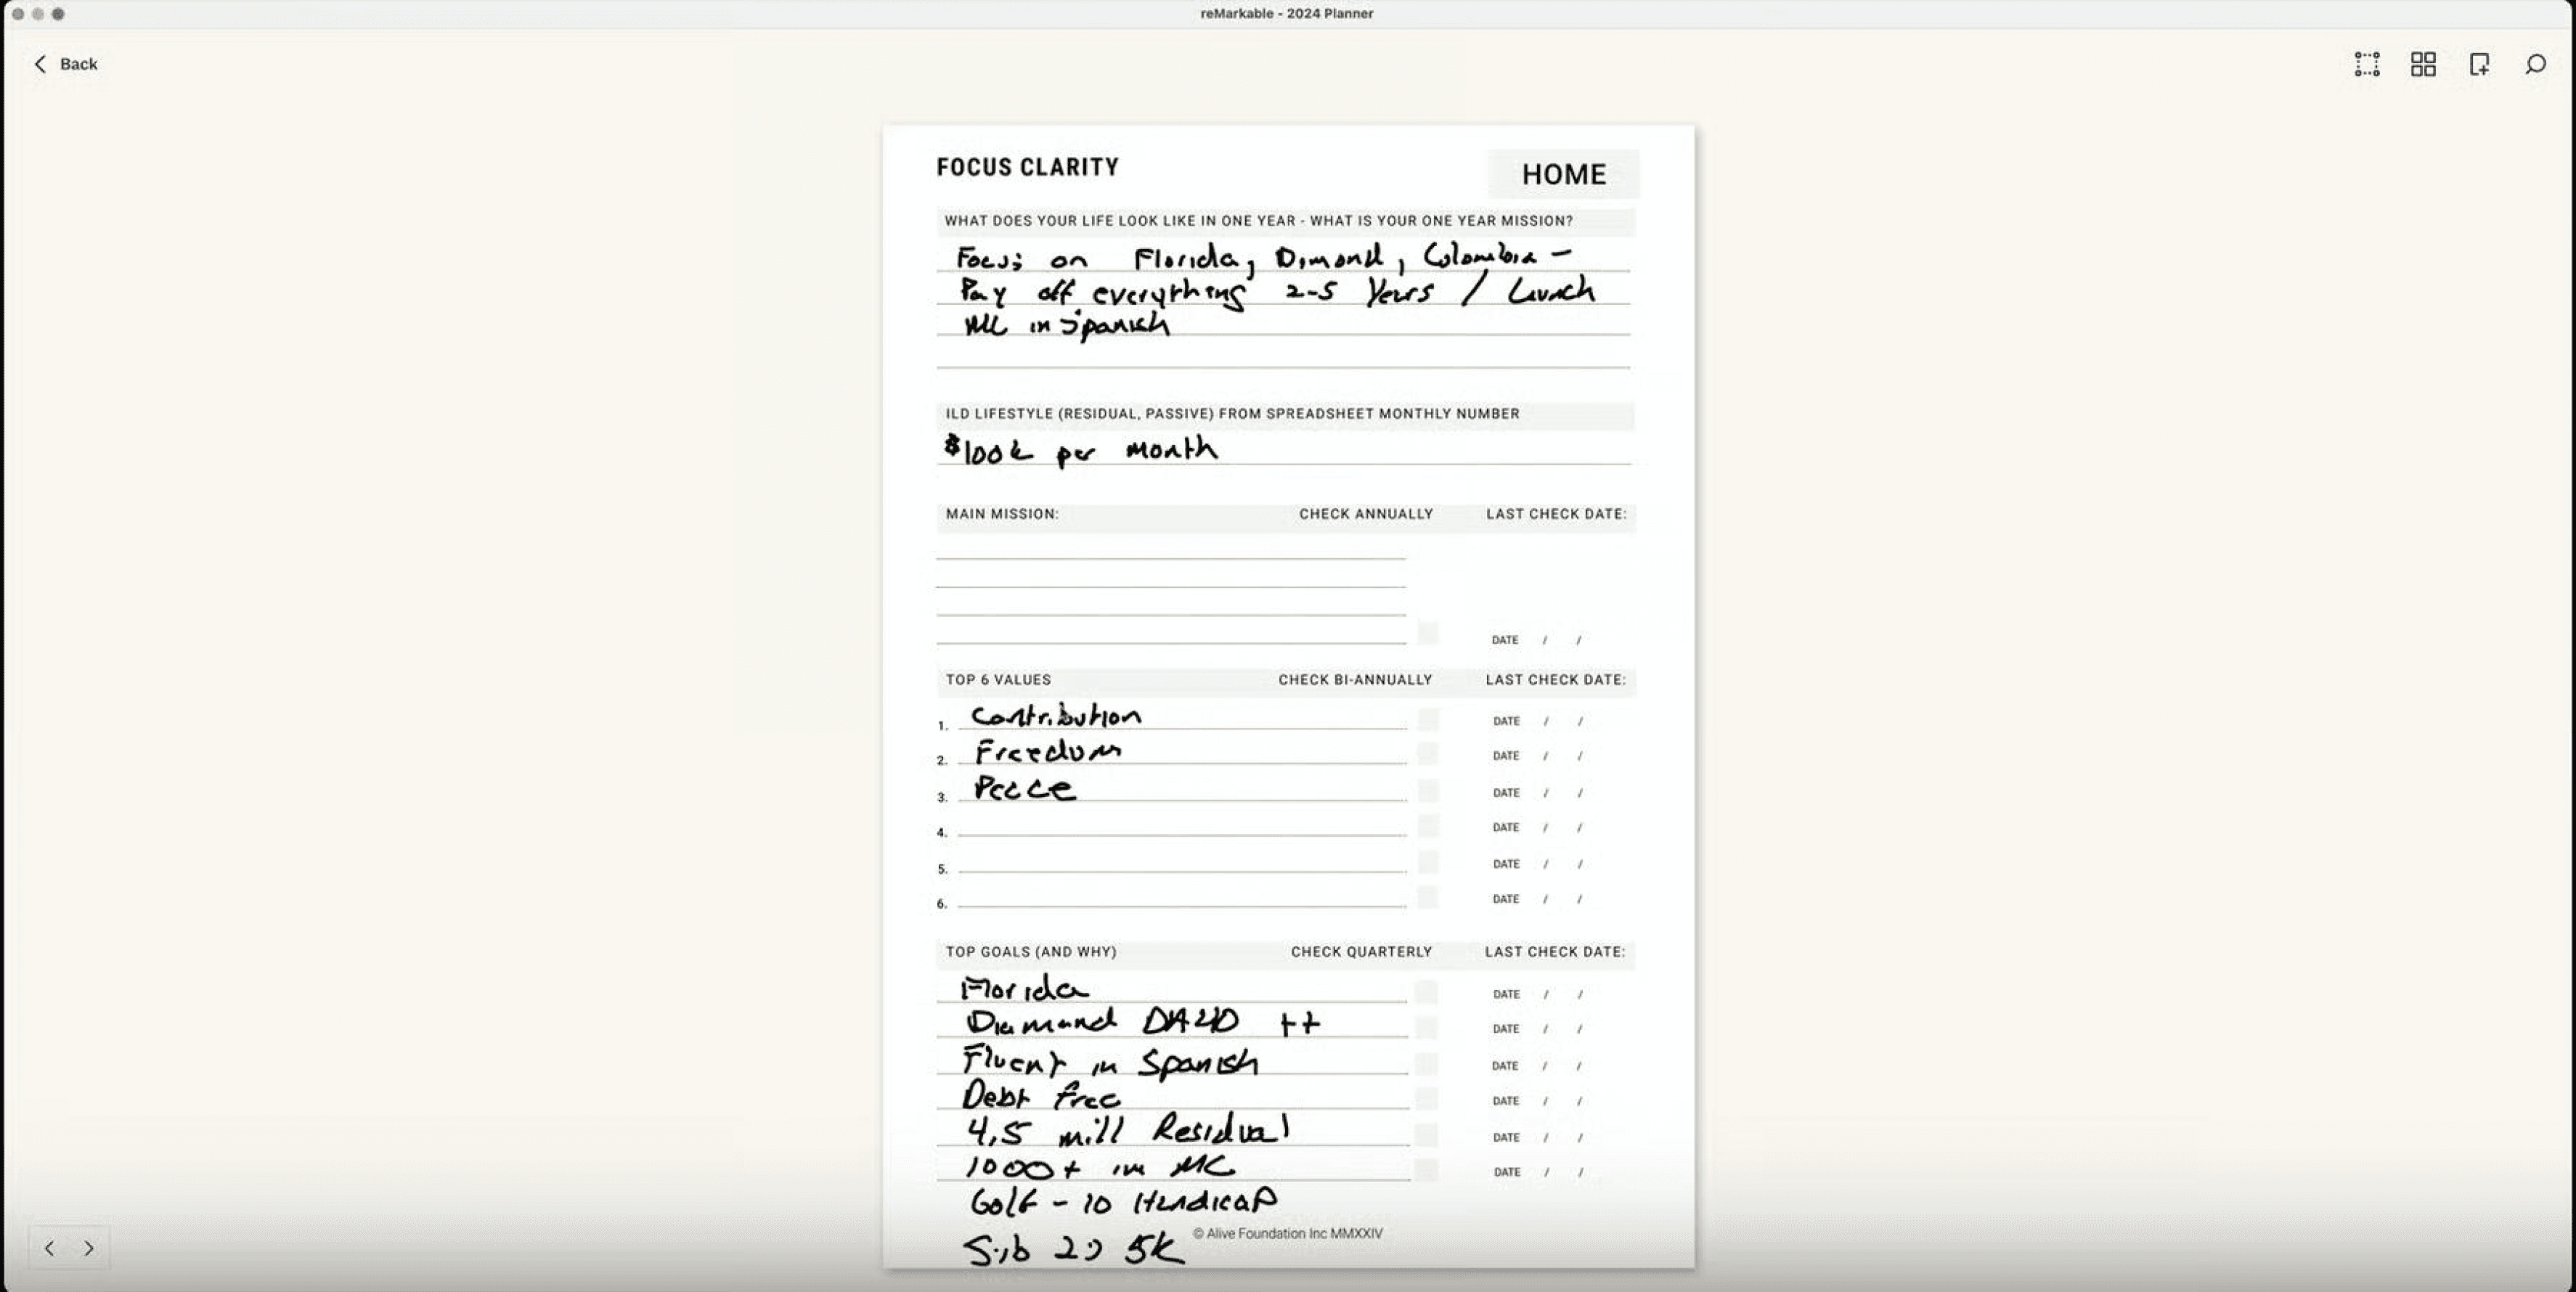 reMarkable - 2024 Planner
Back
FOCUS CLARITY
HOME
WHAT DOES YOUR LIFE LOOK LIKE IN ONE YEAR - WHAT IS YOUR ONE YEAR MISSION?
Focus on Florida, Dimond, Colombia -
Pay off everything 2-5 Years / Launch
in Spanish
ILD LIFESTYLE (RESIDUAL, PASSIVE) FROM SPREADSHEET MONTHLY NUMBER
$100k per month
MAIN MISSION: CHECK ANNUALLY LAST CHECK DATE:
DATE / /
TOP 6 VALUES CHECK BI-ANNUALLY LAST CHECK DATE:
1. Contribution DATE / /
2. Freedom DATE / /
3. Peace DATE / /
4. DATE / /
5. DATE / /
6. DATE / /
TOP GOALS (AND WHY) CHECK QUARTERLY LAST CHECK DATE:
Florida DATE / /
Diamond ++ DATE / /
Fluent in Spanish DATE / /
Debt free DATE / /
4,5 mill Residual DATE / /
1000+ in MC DATE / /
Golf - 10 Handicap
© Alive Foundation Inc MMXXIV
Sub 20 5K